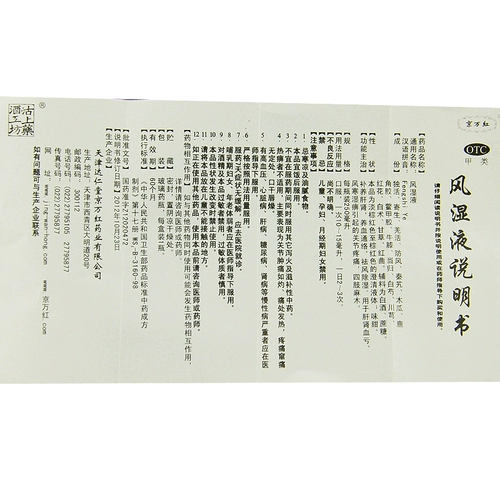 京万红
OTC
甲 类
风湿液说明书
请仔细阅读说明书并按说明使用或在药师指导下购买和使用。
[药品名称]
通用名称：风湿液
汉语拼音：Fengshi Ye
[成 份]独活、寄生、羌活、防风、秦艽、木瓜、鹿
角胶、鳖甲胶、牛膝、当归、白芍、川芎、
红花、白术、甘草、红曲。辅料为白酒、蔗糖。
[性 状]本品为淡棕红色至棕红色的澄清液体；味甜。
[功能主治]补养肝肾，养血通络，祛风除湿。用于肝肾血亏、
风寒湿痹引起的关节疼痛，四肢麻木
[规 格]每瓶装250毫升
[用法用量]口服，一次10～15毫升，一日2～3次。
[不良反应]尚不明确。
[禁 忌]儿童、孕妇、月经期妇女禁用。
[注意事项]
1 忌寒凉及油腻食物
2 本品宜饭后服用。
3 不宜在服药期间同时服用其它泻火及滋补性中药。
4 热痹者不适用，主要表现为关节肿痛如灼、痛处发热，疼痛窜痛
无定处，口干唇燥
5 有高血压、心脏病、肝病、糖尿病、肾病等慢性病严重者应在医
师指导下服用
6 严格按用法用量服用
7 服药7天症状无缓解，应去医院就诊。
8 哺乳期妇女、年老体弱者应在医师指导下服用。
9 对酒精及本品过敏者禁用，过敏体质者慎用。
10 本品性状发生改变时禁止使用。
11 请将本品放在儿童不能接触的地方。
12 如正在使用其他药品，使用本品前请咨询医师或药师
[药物相互作用]如与其他药物同时使用可能会发生药物相互作用，
详情请咨询医师或药师。
[贮 藏]密封，置阴凉干燥处。
[包 装]玻璃药瓶，每盒装1瓶。
[有 效 期]60个月
[执行标准]《中华人民共和国卫生部药品标准中药成方
制剂》第十七册 WS₃-B-3160-98
[批准文号]国药准字Z12020412
[说明书修订日期]2012年10月23日
[生产企业]
天津达仁堂京万红药业有限公司
生产地址：天津市西青区大明道20号
邮政编码：300112
电话号码：(022)27795105 27795877
传真号码：(022)27795877
网 址：www.jingwanhong.com
京万红.com
如有问题可与生产企业联系
古上药
酒工坊
®